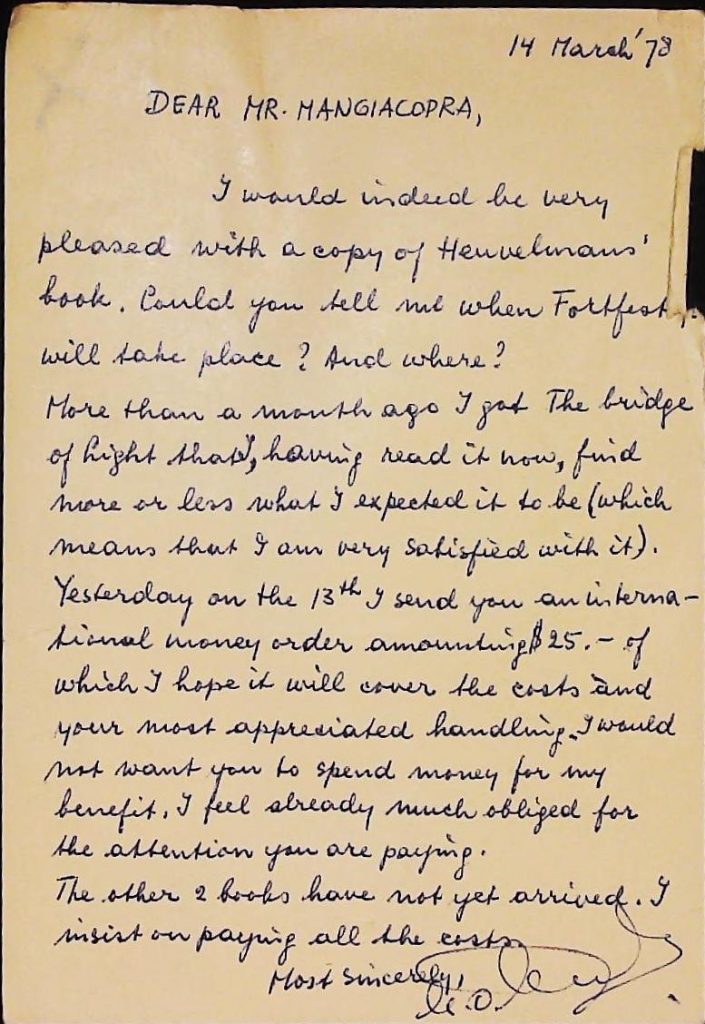 14 March '78
DEAR MR. MANGIACOPRA,
I would indeed be very
pleased with a copy of Heuvelmans'
book. Could you tell me when Fortfest
will take place? And where?
More than a month ago I got The bridge
of light that I, having read it now, find
more or less what I expected it to be (which
means that I am very satisfied with it).
Yesterday on the 13th I send you an interna-
tional money order amounting $25.- of
which I hope it will cover the costs and
your most appreciated handling. I would
not want you to spend money for my
benefit. I feel already much obliged for
the attention you are paying.
The other 2 books have not yet arrived. I
insist on paying all the costs.
Most sincerely,